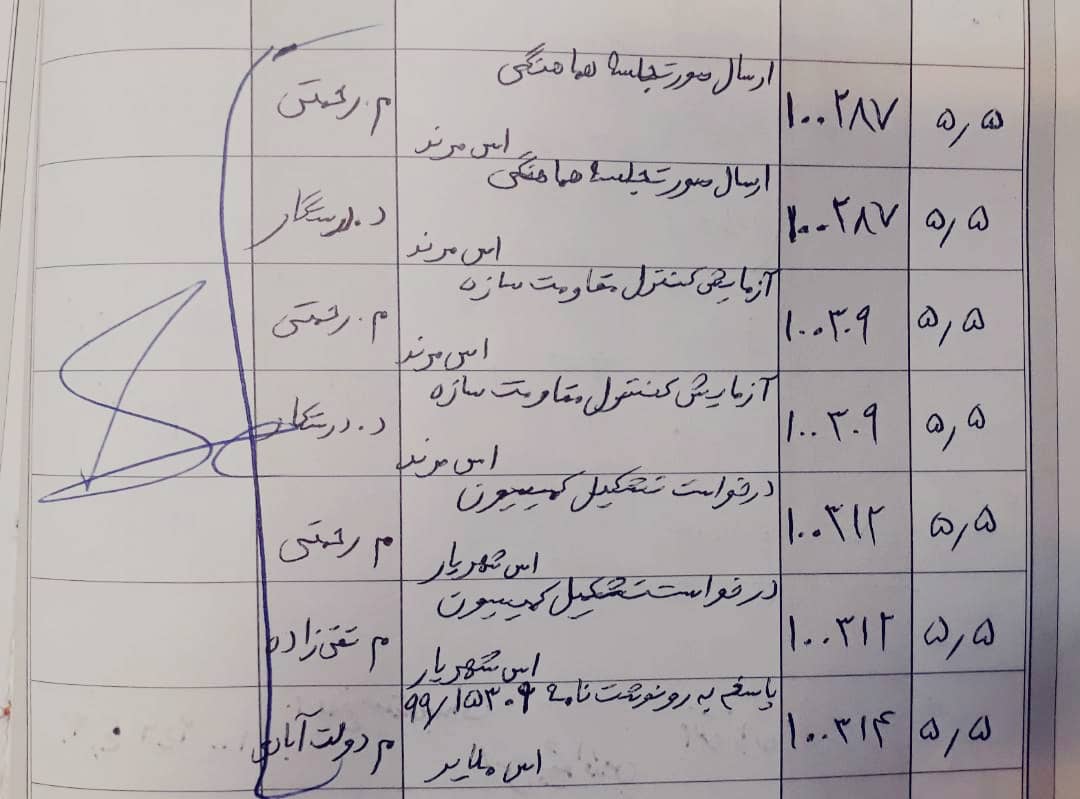 ۵٫۵ ۱۰۰۲۸۷ ارسال صورتجلسه هماهنگی م. رحمتی
اس مرند
۵٫۵ ۱۰۰۲۸۷ ارسال صورتجلسه هماهنگی د. درستکار
اس مرند
۵٫۵ ۱۰۰۳۰۹ آزمایش کنترل مقاومت سازه م. رحمتی
اس مرند
۵٫۵ ۱۰۰۳۰۹ آزمایش کنترل مقاومت سازه د. درستکار
اس مرند
۵٫۵ ۱۰۰۳۱۲ درخواست تشکیل کمیسیون م رحمتی
اس شهریار
۵٫۵ ۱۰۰۳۱۲ درخواست تشکیل کمیسیون م تقی زاده
اس شهریار
۵٫۵ ۱۰۰۳۱۴ پاسخ به رونوشت نامه ۹۹/۱۵۳۰۹ م دولت آبادی
اس ملایر